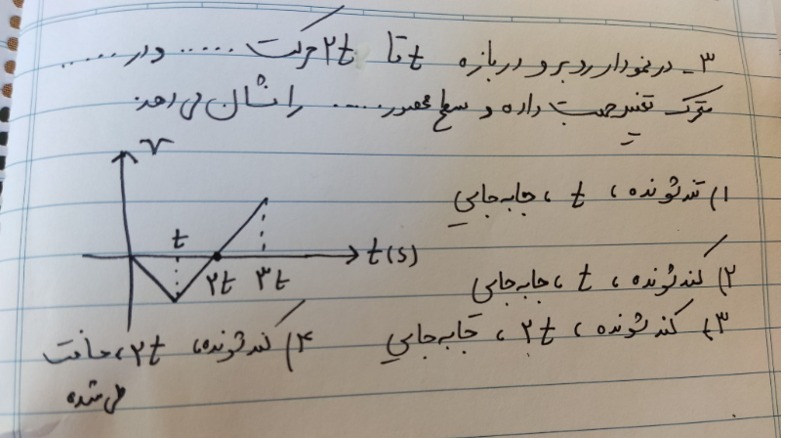 ۳ـ در نمودار رو برو در بازه t تا ۲t حرکت ..... و در .....
متحرک تغییر جهت داده و سطح محصور ..... را نشان می دهد.
۱) تند شونده ، t ، جابه جایی
۲) کند شونده ، t ، جابه جایی
۳) کند شونده ، ۲t ، جابه جایی
۴) کند شونده، ۲t ، مسافت
طی شده
v
t
۲t ۳t t(s)